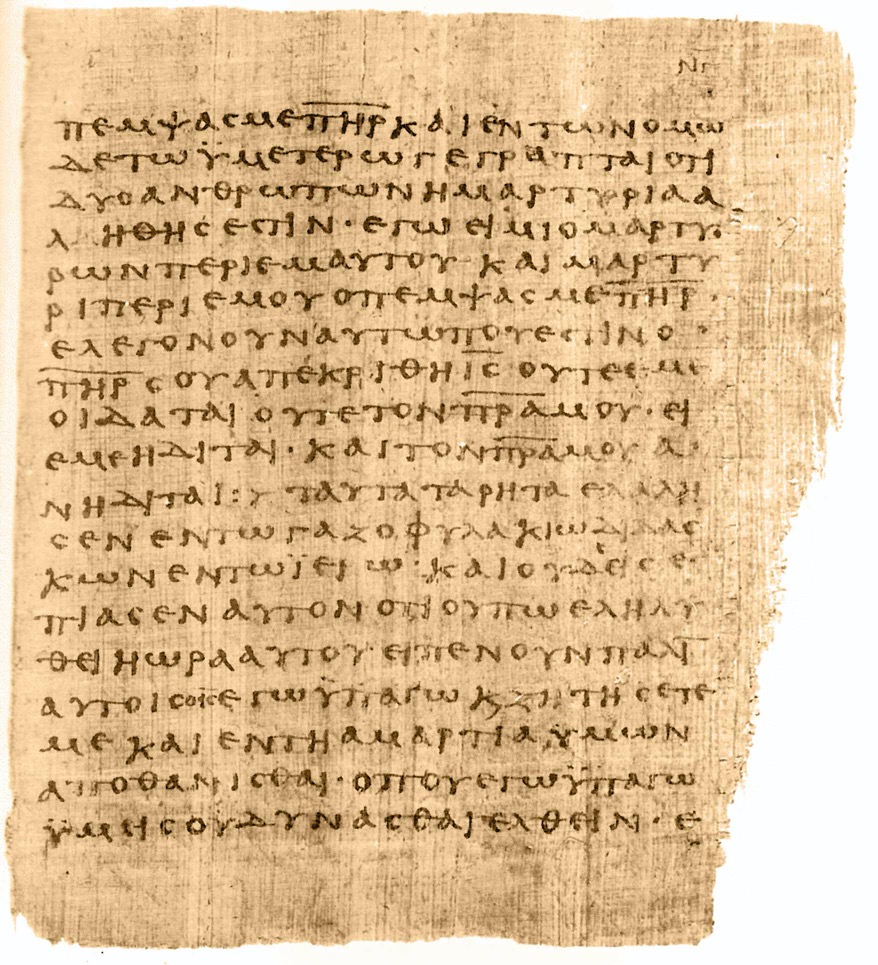 ΝΓ
ΠΕΜΨΑΣΜΕΠΗΡΚΑΙΕΝΤΩΝΟΜΩ
ΔΕΤΩΫΜΕΤΕΡΩΓΕΓΡΑΠΤΑΙΟΤΙ
ΔΥΟΑΝΘΡΩΠΩΝΗΜΑΡΤΥΡΙΑΑ
ΛΗΘΗΣΕΣΤΙΝ·ΕΓΩΕΙΜΙΟΜΑΡΤΥ
ΡΩΝΠΕΡΙΕΜΑΥΤΟΥΚΑΙΜΑΡΤΥ
ΡΙΠΕΡΙΕΜΟΥΟΠΕΜΨΑΣΜΕΠΗΡ·
ΕΛΕΓΟΝΟΥΝΑΥΤΩΠΟΥΕΣΤΙΝΟ
ΠΗΡΣΟΥΑΠΕΚΡΙΘΗΙΣΟΥΤΕΕΜΕ
ΟΙΔΑΤΑΙΟΥΤΕΤΟΝΠΡΑΜΟΥ·ΕΙ
ΕΜΕΗΔΙΤΑΙ·ΚΑΙΤΟΝΠΡΑΜΟΥΑ
ΝΗΔΙΤΑΙ:ΤΑΥΤΑΤΑΡΗΤΑΕΛΑΛΗ
ΣΕΝΕΝΤΩΓΑΖΟΦΥΛΑΚΙΩΔΙΔΑΣ
ΚΩΝΕΝΤΩΪΕΡΩ·ΚΑΙΟΥΔΕΙΣΕ
ΠΙΑΣΕΝΑΥΤΟΝΟΤΙΟΥΠΩΕΛΗΛΥ
ΘΕΙΗΩΡΑΑΥΤΟΥ·ΕΙΠΕΝΟΥΝΠΑΛΙ
ΑΥΤΟΙΣΕΓΩΫΠΑΓΩΚΖΗΤΗΣΕΤΕ
ΜΕΚΑΙΕΝΤΗΑΜΑΡΤΙΑΫΜΩΝ
ΑΠΟΘΑΝΙΣΘΑΙ·ΟΠΟΥΕΓΩΫΠΑΓΩ
ΫΜΕΙΣΟΥΔΥΝΑΣΘΑΙΕΛΘΕΙΝ·Ε